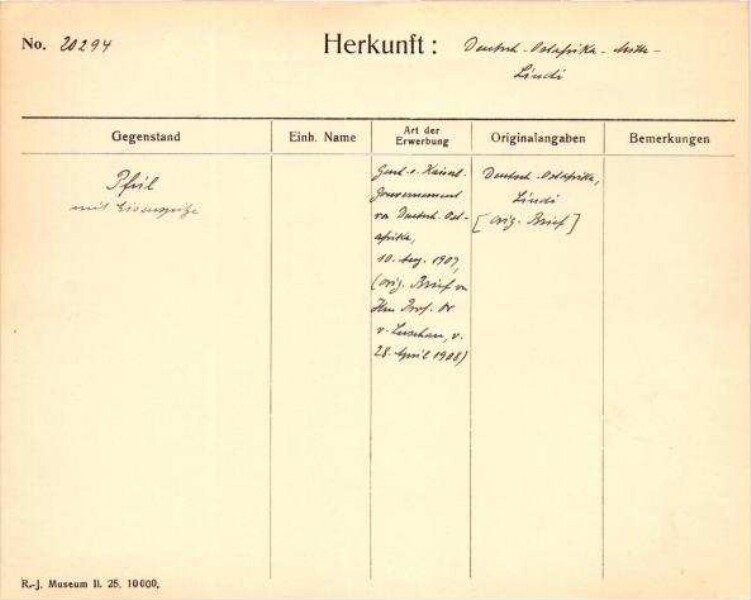 No. 20294
Herkunft: Deutsch-Ostafrika -
Lindi
Gegenstand
Einh. Name
Art der
Erwerbung
Originalangaben
Bemerkungen
Pfeil
mit Eisenspitze
Kaiserl.
Gouvernement
von Deutsch-Ost-
afrika,
10. 1907,
(orig. Brief v.
Hrn Prof. Dr
v. Luschan, v.
28. April 1908)
Deutsch-Ostafrika,
Lindi
[orig. Brief]
R.-J. Museum II. 25. 10000.